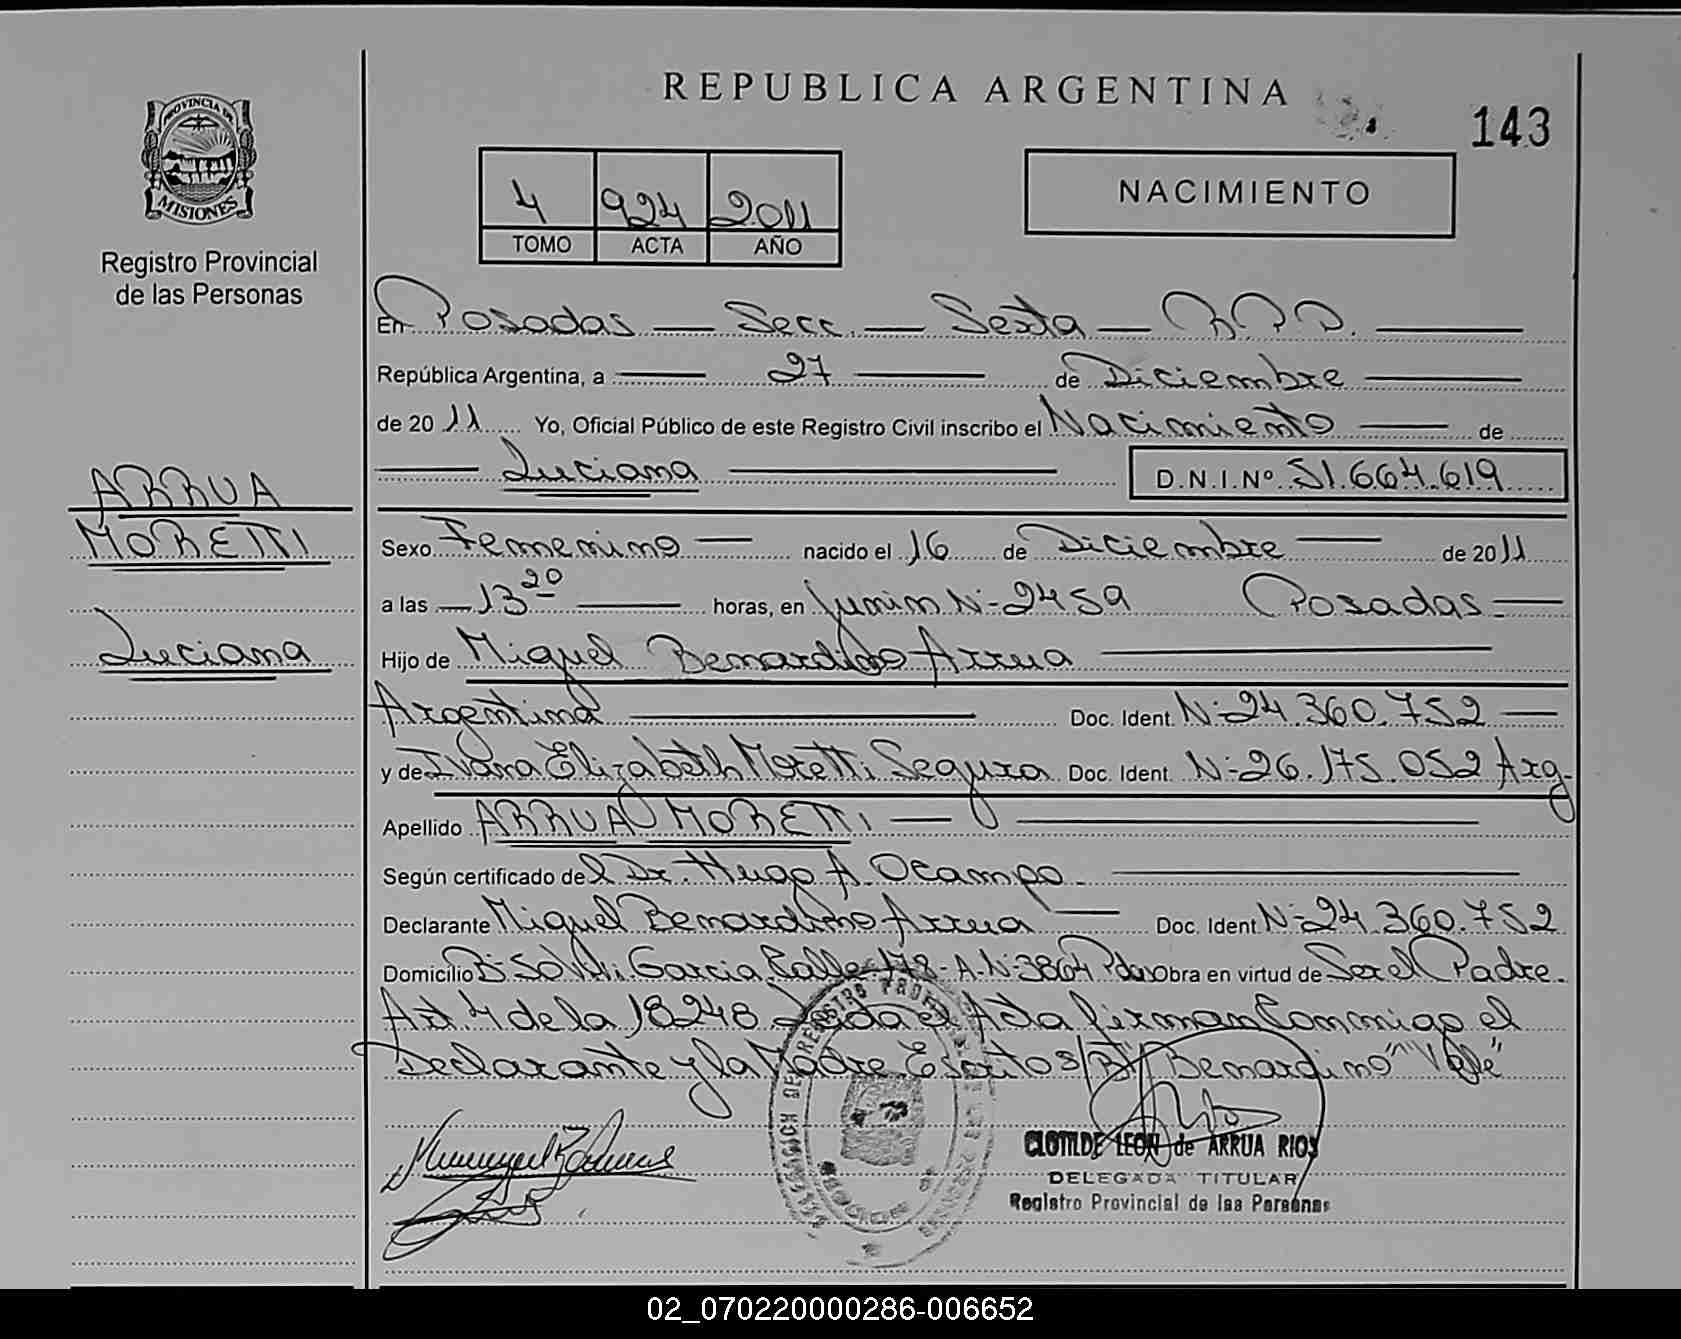 REPUBLICA ARGENTINA
143
PROVINCIA DE
MISIONES
Registro Provincial
de las Personas
4 924 2011
TOMO ACTA AÑO
NACIMIENTO
En Posadas — Secc. — Sexta — R.P.P. —
República Argentina, a — 27 — de Diciembre —
de 20 11 Yo, Oficial Público de este Registro Civil inscribo el Nacimiento — de
— Luciana — D.N.I.Nº 51.664.619
ARRUA
MORETTI
Luciana
Sexo Femenino — nacido el 16 de Diciembre — de 20 11
a las — 13 20 — horas, en Junin Nº 2459 Posadas —
Hijo de Miguel Bernardino Arrua —
Argentina — Doc. Ident. Nº 24.360.752 —
y de Ivana Elizabeth Moretti Segura Doc. Ident. Nº 26.175.052 Arg.
Apellido ARRUA MORETTI —
Según certificado del Dr. Hugo A. Ocampo. —
Declarante Miguel Bernardino Arrua — Doc. Ident. Nº 24.360.752
Domicilio Bº Sol Garcia Calle 178-A-Nº 3864 Pdas Obra en virtud de Ser el Padre.
Art. 4 de la 18248 Leida el Acta firman Conmigo el
Declarante y la Madre Escritos S/R "Bernardino" "Vale"
CLOTILDE LEON de ARRUA RIOS
DELEGADA TITULAR
Registro Provincial de las Personas
02_070220000286-006652